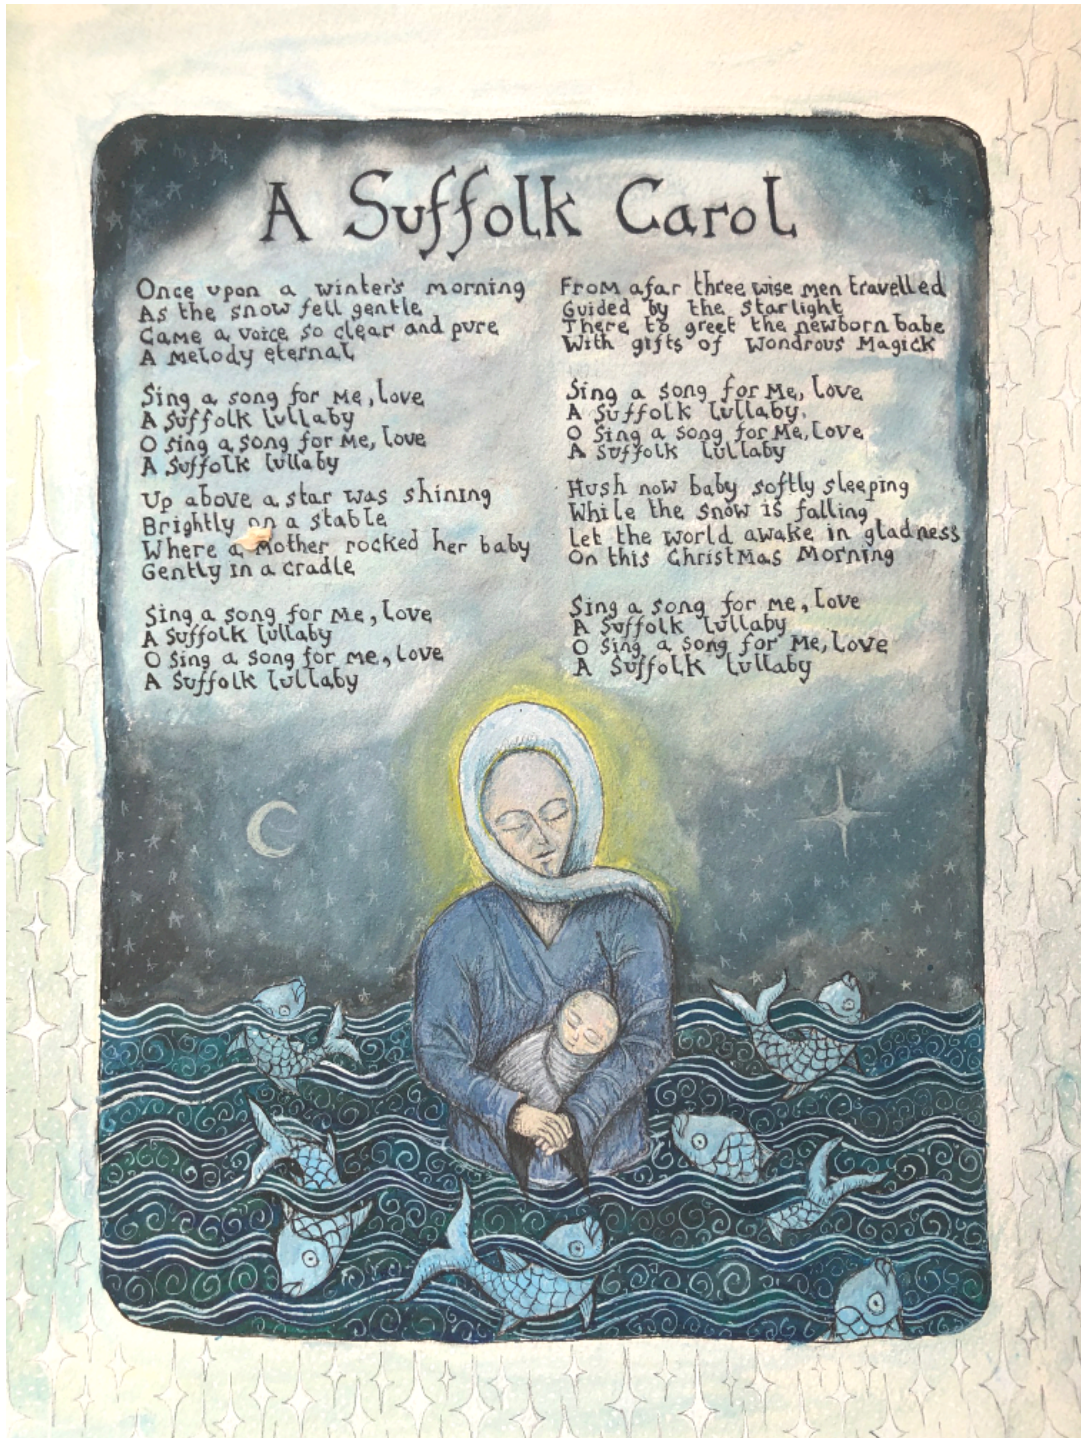 A Suffolk Carol
Once upon a winter's morning
As the snow fell gentle
Came a voice so clear and pure
A melody eternal
Sing a song for me, love
A Suffolk lullaby
O sing a song for me, love
A Suffolk lullaby
Up above a star was shining
Brightly on a stable
Where a mother rocked her baby
Gently in a cradle
Sing a song for me, love
A Suffolk lullaby
O sing a song for me, love
A Suffolk lullaby
From afar three wise men travelled
Guided by the starlight
There to greet the newborn babe
With gifts of wondrous Magick
Sing a song for me, love
A Suffolk lullaby.
O sing a song for me, love
A Suffolk lullaby
Hush now baby softly sleeping
While the snow is falling
Let the world awake in gladness
On this Christmas Morning
Sing a song for me, love
A Suffolk lullaby
O sing a song for me, love
A Suffolk lullaby